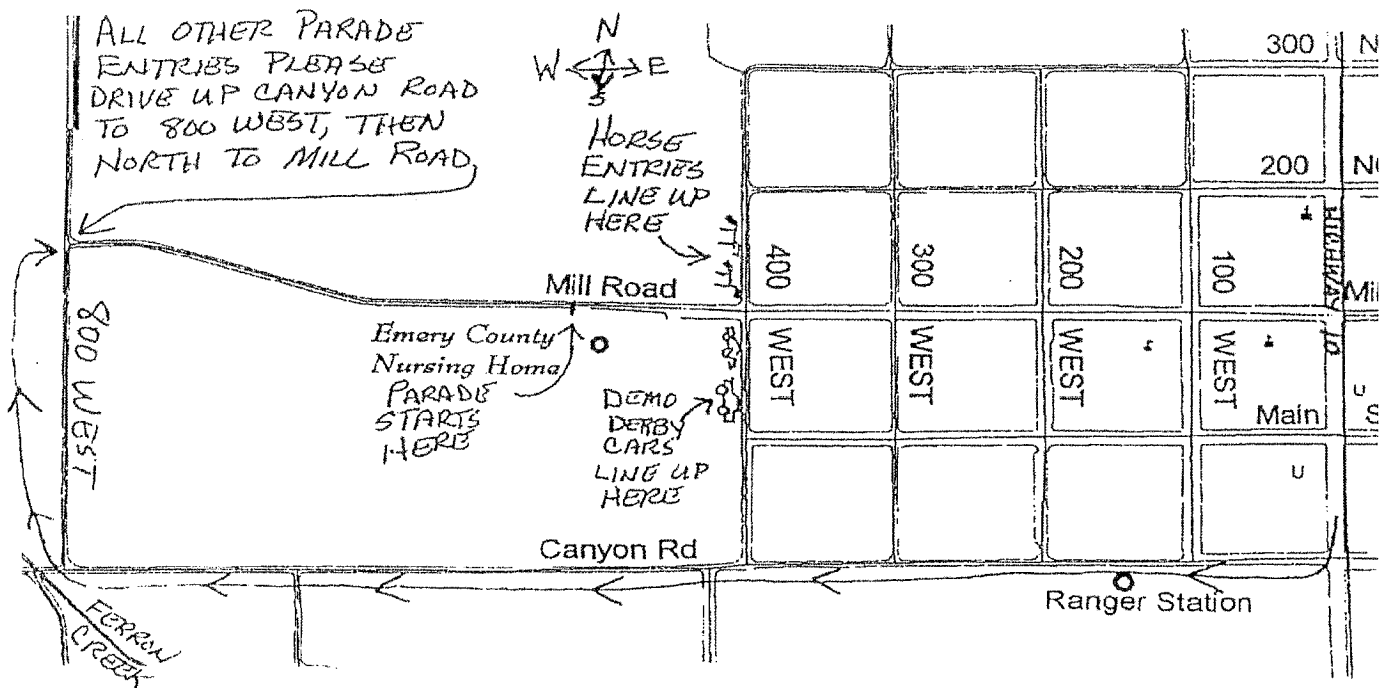 ALL OTHER PARADE
ENTRIES PLEASE
DRIVE UP CANYON ROAD
TO 800 WEST, THEN
NORTH TO MILL ROAD,
N
W E
S
HORSE
ENTRIES
LINE UP
HERE
300 N
200
400 WEST
300 WEST
200 WEST
100 WEST
HIGHWAY 10
Mill Road
Mil
800 WEST
Emery County
Nursing Home
PARADE
STARTS
HERE
DEMO
DERBY
CARS
LINE UP
HERE
Main S
U
U
Canyon Rd
Ranger Station
FERRON
CREEK